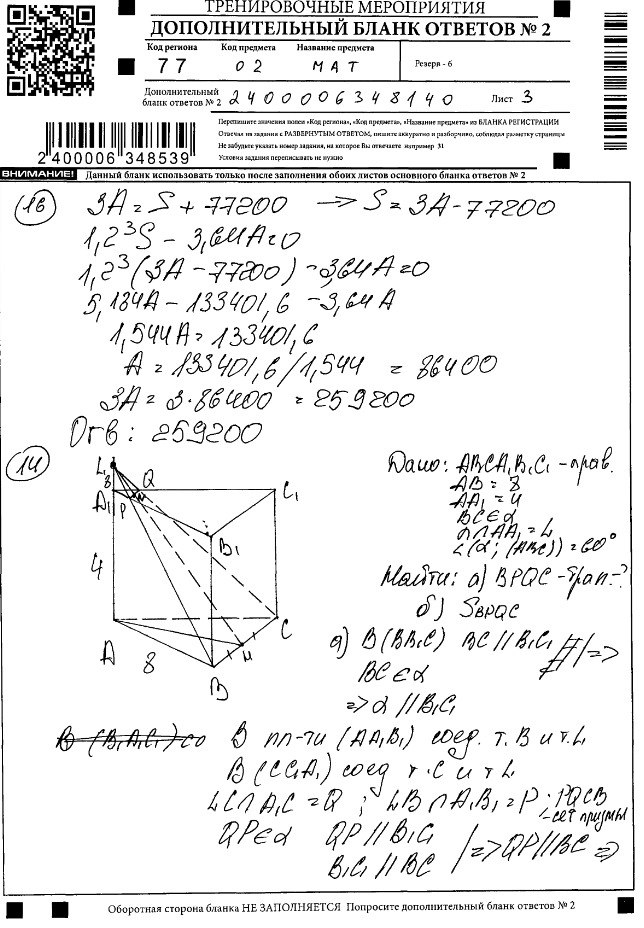 ТРЕНИРОВОЧНЫЕ МЕРОПРИЯТИЯ
ДОПОЛНИТЕЛЬНЫЙ БЛАНК ОТВЕТОВ № 2
Код региона Код предмета Название предмета
77 02 МАТ Резерв - 6
Дополнительный
бланк ответов № 2 2400006348140 Лист 3
Перепишите значения полей «Код региона», «Код предмета», «Название предмета» из БЛАНКА РЕГИСТРАЦИИ
Отвечая на задания с РАЗВЕРНУТЫМ ОТВЕТОМ, пишите аккуратно и разборчиво, соблюдая разметку страницы
Не забудьте указать номер задания, на которое Вы отвечаете например 31
Условия задания переписывать не нужно
2 400006 348539
ВНИМАНИЕ! Данный бланк использовать только после заполнения обоих листов основного бланка ответов № 2
16 3A = S + 77200 → S = 3A - 77200
1,2³S - 3,64A = 0
1,2³(3A - 77200) - 3,64A = 0
5,184A - 133401,6 - 3,64A
1,544A = 133401,6
A = 133401,6/1,544 = 86400
3A = 3·86400 = 259200
Отв: 259200
14
L
8
Q
A₁
P
C₁
B₁
4
A
8
B
H
C
Дано: ABCA₁B₁C₁ - прав.
AB = 8
AA₁ = 4
BC ∈ α
α ∩ AA₁ = L
∠(α; (ABC)) = 60°
Найти: а) BPQC - трап-?
б) SBPQC
а) В (BB₁C) BC // B₁C₁ | =>
BC ∈ α
=> α // B₁C₁
В (B₁A₁C₁) со В пл-ти (AA₁B₁) соед. т. B и т. L
В (CC₁A₁) соед т. C и т L
LC ∩ A₁C = Q ; LB ∩ A₁B₁ = P ; PQCB
- сеч призмы
QP ∈ α QP // B₁C₁
B₁C₁ // BC | => QP // BC =>
Оборотная сторона бланка НЕ ЗАПОЛНЯЕТСЯ Попросите дополнительный бланк ответов № 2